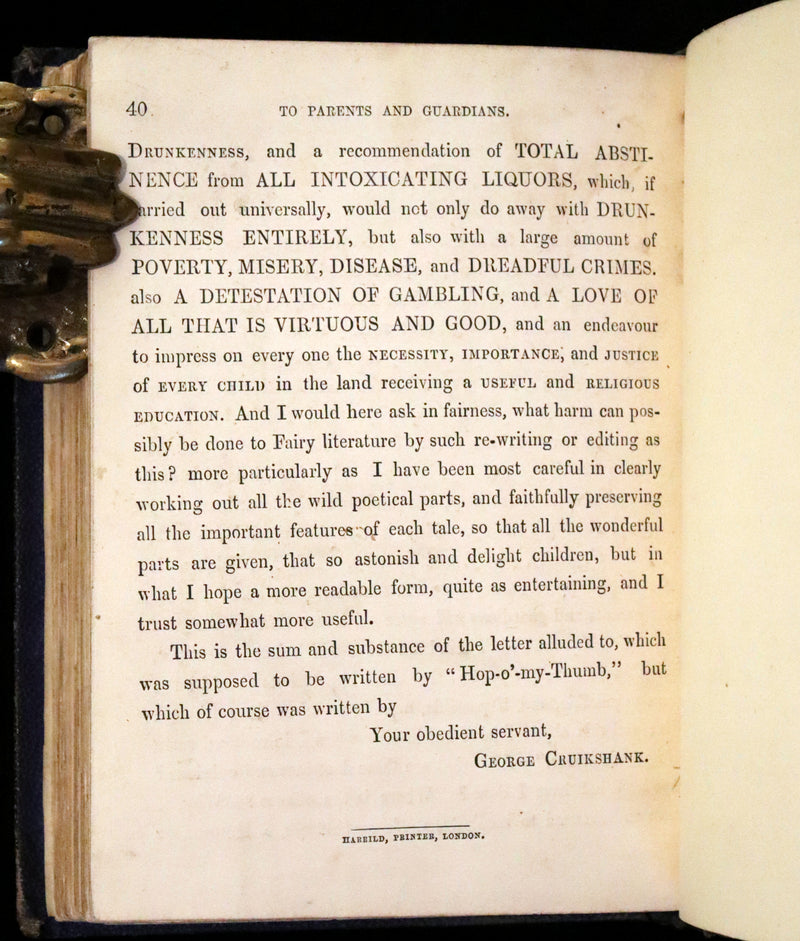 40. TO PARENTS AND GUARDIANS.
DRUNKENNESS, and a recommendation of TOTAL ABSTI-
NENCE from ALL INTOXICATING LIQUORS, which, if
arried out universally, would not only do away with DRUN-
KENNESS ENTIRELY, but also with a large amount of
POVERTY, MISERY, DISEASE, and DREADFUL CRIMES.
also A DETESTATION OF GAMBLING, and A LOVE OF
ALL THAT IS VIRTUOUS AND GOOD, and an endeavour
to impress on every one the NECESSITY, IMPORTANCE, and JUSTICE
of EVERY CHILD in the land receiving a USEFUL and RELIGIOUS
EDUCATION. And I would here ask in fairness, what harm can pos-
sibly be done to Fairy literature by such re-writing or editing as
this? more particularly as I have been most careful in clearly
working out all the wild poetical parts, and faithfully preserving
all the important features of each tale, so that all the wonderful
parts are given, that so astonish and delight children, but in
what I hope a more readable form, quite as entertaining, and I
trust somewhat more useful.
This is the sum and substance of the letter alluded to, which
was supposed to be written by "Hop-o'-my-Thumb," but
which of course was written by
Your obedient servant,
GEORGE CRUIKSHANK.
HARRILD, PRINTER, LONDON.